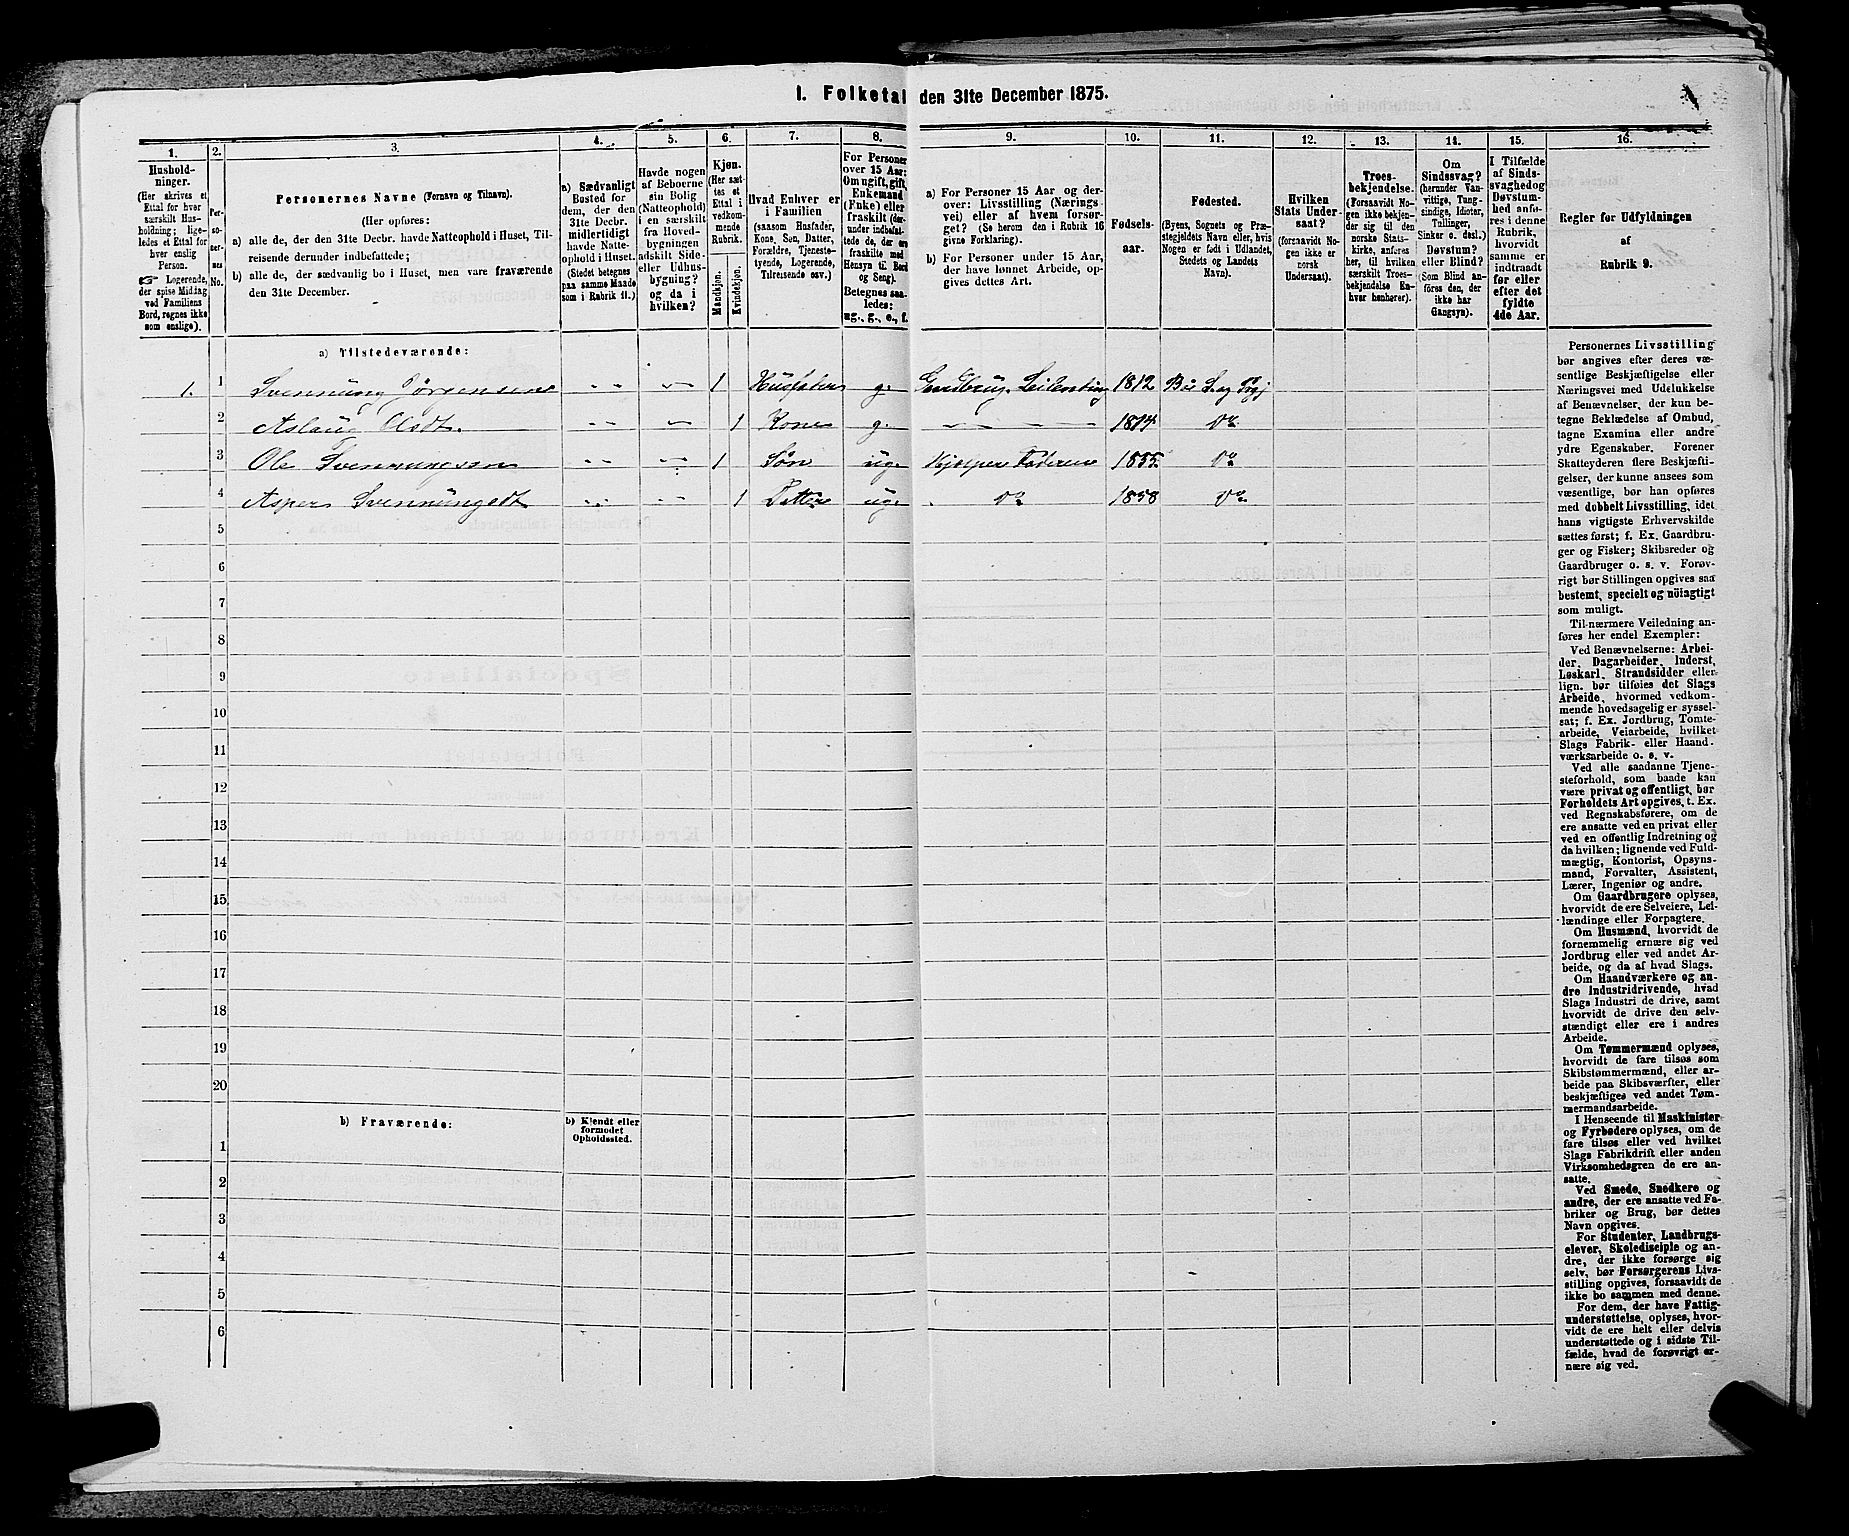 1. Folketal den 31te December 1875.
1. 2. 3. 4. 5. 6. 7. 8. 9. 10. 11. 12. 13. 14. 15. 16.
Hushold-
ninger.
(Her skrives et
Ettal for hver
særskilt Hus-
holdning; lige-
ledes et Ettal for
hver enslig
Person.
☞ Logerende,
der spise Middag
ved Familiens
Bord, regnes ikke
som enslige).
Per-
so-
ner-
nes
No.
Personernes Navne (Fornavn og Tilnavn).
(Her opføres:
a) alle de, der den 31te Decbr. havde Natteophold i Huset, Til-
reisende derunder indbefattede;
b) alle de, der sædvanlig bo i Huset, men vare fraværende
den 31te December.
a) Sædvanligt
Bosted for
dem, der den
31te Decbr.
midlertidigt
havde Natte-
ophold i Huset.
(Stedet betegnes
paa samme Maade
som i Rubrik 11.)
Havde nogen
af Beboerne
sin Bolig
(Natteophold)
i en særskilt
fra Hoved-
bygningen
adskilt Side-
eller Udhus-
bygning?
og da i
hvilken?
Kjøn.
(Her sæt-
tes et
Ettal i
vedkom-
mende
Rubrik.
Mandkjøn.
Kvindekjøn.
Hvad Enhver er
i Familien
(saasom Husfader,
Kone, Søn, Datter,
Forældre, Tjeneste-
tyende, Logerende,
Tilreisende osv.)
For Personer
over 15 Aar:
Om ugift, gift,
Enkemand
(Enke) eller
fraskilt (der-
under indbefat-
tede de, der ere
fraskilte med
Hensyn til Bord
og Seng).
Betegnes saa-
ledes:
ug., g., e., f.
a) For Personer 15 Aar og der-
over: Livsstilling (Nærings-
vei) eller af hvem forsør-
get? (Se herom den i Rubrik 16
givne Forklaring).
b) For Personer under 15 Aar,
der have lønnet Arbeide, op-
gives dettes Art.
Fødsels-
aar.
Fødested.
(Byens, Sognets og Præ-
stegjeldets Navn eller, hvis
Nogen er født i Udlandet,
Stedets og Landets
Navn).
Hvilken
Stats Under-
saat?
(forsaavidt No-
gen ikke er
norsk
Undersaat).
Troes-
bekjendelse.
(Forsaavidt No-
gen ikke bekjen-
der sig til den
norske Stats-
kirke, anføres
her, til hvilken
særskilt Troes-
bekjendelse En-
hver henhører).
Om
Sindssvag?
(herunder Van-
vittige, Tung-
sindige, Idioter,
Tullinger,
Sinker o. desl.)
Døvstum?
eller Blind?
(Som Blind an-
føres den, der
ikke har
Gangsyn).
I Tilfælde
af Sinds-
svaghed og
Døvstum-
hed anfø-
res i denne
Rubrik,
hvorvidt
samme er
indtraadt
før eller
efter det
fyldte
4de Aar.
Regler for Udfyldningen
af
Rubrik 9.
a) Tilstedeværende:
1. 1 Svennung Jørgensen 1 Husfader g. Gaardbrug. Leilending 1812
2 Aslaug Olsdt. 1 Kone g. 1814 Do
3 Ole Svennungssøn 1 Søn ug. Hjælper Faderen 1855. Do
4 Asper Svennungsdt 1 Datter ug. Do 1858 Do
5
6
7
8
9
10
11
12
13
14
15
16
17
18
19
20
b) Fraværende: b) Kjendt eller
formodet
Opholdssted.
1
2
3
4
5
6
Personernes Livsstilling
bør angives efter deres væ-
sentlige Beskjæftigelse eller
Næringsvei med Udelukkelse
af Benævnelser, der kun be-
tegne Beklædelse af Ombud,
tagne Examina eller andre
ydre Egenskaber. Forener
Skatteyderen flere Beskjæfti-
gelser, der kunne ansees som
væsentlige, bør han opføres
med dobbelt Livsstilling, idet
hans vigtigste Erhvervskilde
sættes først; f. Ex. Gaardbru-
ger og Fisker; Skibsreder og
Gaardbruger o. s. v. Forøv-
rigt bør Stillingen opgives saa
bestemt, specielt og nöiagtigt
som muligt.
Til nærmere Veiledning an-
føres her endel Exempler:
Ved Benævnelserne: Arbei-
der, Dagarbeider, Inderst,
Løskarl, Strandsidder eller
lign. bør tilføies det Slags
Arbeide, hvormed vedkom-
mende hovedsagelig er syssel-
sat; f. Ex. Jordbrug, Tomte-
arbeide, Veiarbeide, hvilket
Slags Fabrik- eller Haand-
værksarbeide o. s. v.
Ved alle saadanne Tjene-
steforhold, som baade kan
være privat og offentligt, bør
Forholdets Art opgives, t. Ex.
ved Regnskabsførere, om de
ere ansatte ved en privat eller
ved en offentlig Indretning og
da hvilken; lignende ved Fuld-
mægtig, Kontorist, Opsyns-
mand, Forvalter, Assistent,
Lærer, Ingeniør og andre.
Om Gaardbrugere oplyses,
hvorvidt de ere Selveiere, Lei-
lændinge eller Forpagtere.
Om Husmænd, hvorvidt de
fornemmelig ernære sig ved
Jordbrug eller ved andet Ar-
beide, og da af hvad Slags.
Om Haandværkere og an-
dre Industridrivende, hvad
Slags Industri de drive, samt
hvorvidt de drive den selv-
stændigt eller ere i andres
Arbeide.
Om Tømmermænd oplyses,
hvorvidt de fare tilsøs som
Skibstømmermænd, eller ar-
beide paa Skibsværfter, eller
beskjæftiges ved andet Tøm-
mermandsarbeide.
I Henseende til Maskinister
og Fyrbødere oplyses, om de
fare tilsøs eller ved hvilket
Slags Fabrikdrift eller anden
Virksomhedsgren de ere an-
satte.
Ved Smede, Snedkere og
andre, der ere ansatte ved Fa-
briker og Brug, bør dettes
Navn opgives.
For Studenter, Landbrugs-
elever, Skoledisciple og an-
dre, der ikke forsørge sig
selv, bør Forsørgerens Livs-
stilling opgives, forsaavidt de
ikke bo sammen med denne.
For dem, der have Fattig-
understøttelse, oplyses, hvor-
vidt de ere helt eller delvis
understøttede og i sidste Til-
fælde, hvad de forøvrigt er-
nære sig ved.